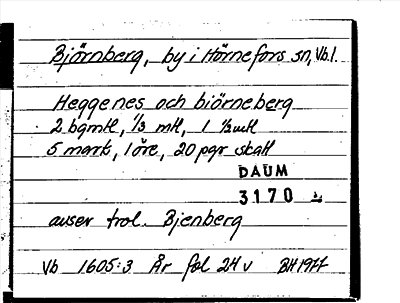 Björnberg, by i Hörnefors sn, Vb.l.
Heggenes och biörneberg
2 bgmtl, 1/3 mtl, 1 1/3 mtl
5 mark, 1 öre, 20 pgr skatt
DAUM
3170
avser trol. Bjenberg
Vb 1605:3 År fol 24 v BH 1977